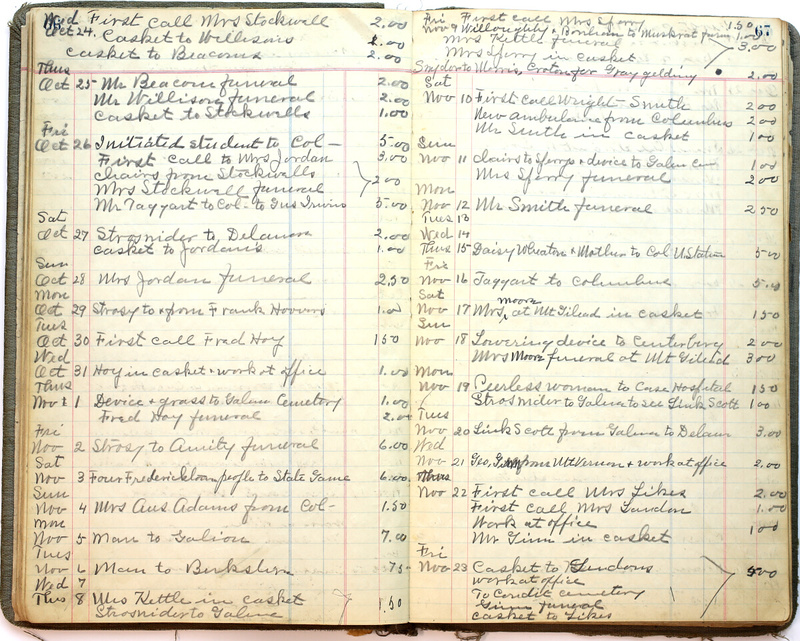 Wed First Call Mrs Stockwell 2.00
Oct 24. Casket to Willisons 1.00
Casket to Beacoms 2.00
Thus
Oct 25 Mr Beacom funeral 2.00
Mr Willison funeral 2.00
Casket to Stockwells 1.00
Fri
Oct 26 Initiated student to Col- 5.00
First Call to Mrs Jordan 3.00
Chairs from Stockwells
Mrs Stockwell funeral 2.00
Mr Taggart to Col- to Gus Irwins 5.00
Sat
Oct 27 Strosnider to Delaware 2.00
Casket to Jordan's 1.00
Sun
Oct 28 Mrs Jordan funeral 2.50
Mon
Oct 29 Strosy to & from Frank Hoovers 1.00
Tues
Oct 30 First call Fred Hoy 1 50
Wed
Oct 31 Hoy in casket & work at office 1.00
Thus
Nov 1 Device & grass to Galena Cemetery 1.00
Fred Hoy funeral 2.00
Fri
Nov 2 Strosy to Amity funeral 6.00
Sat
Nov 3 Four Fredericktown people to State Game 6.00
Sun
Nov 4 Mrs Aus Adams from Col- 1.50
Mon
Nov 5 Man to Galion 7.00
Tues
Nov 6 Man to 75
Wed 7
Thus 8 Mrs Kettle in casket
Strosnider to Galena 1 50
67
Fri First call Mrs Sperry 1.50
Nov 9 Willoughby & to farm 1.00
Mrs Kettle funeral
Mrs Sperry in casket 3.00
Snyder to Morris, Croton for Gray gelding 2.00
Sat
Nov 10 First call Wright- Smith 2 00
New ambulance from Columbus 2 00
Mr Smith in casket 1 00
Sun
Nov 11 Chairs to Sperrys & device to Galena Cem 1 00
Mrs Sperry funeral 2 00
Mon
Nov 12 Mr Smith funeral 2 50
Tues 13
Wed 14
Thus 15 Daisy Wheaton & Mother to Col U Station 5 00
Fri
Nov 16 Taggart to Columbus 5.00
Sat
Nov 17 Mrs Moon at Mt Gilead in casket 1 50
Sun
Nov 18 Lowering device to Centerburg 2 00
Mrs Moon funeral at Mt Gilead 3 00
Mon
Nov 19 Peerless woman to Case Hospital 1 50
Strosnider to Galena to see Link Scott 1 00
Tues
Nov 20 Link Scott from Galena to Delaware 3.00
Wed
Nov 21 Geo, from Mt Vernon & work at office 2.00
Thus
Nov 22 First call Mrs Likes 2.00
First call Mrs Landon 1.00
Work at office
Mr Ginn in casket 1 00
Fri
Nov 23 Casket to Landons 5 00
work at office
To Condit cemetery
Ginn funeral
Casket to Likes